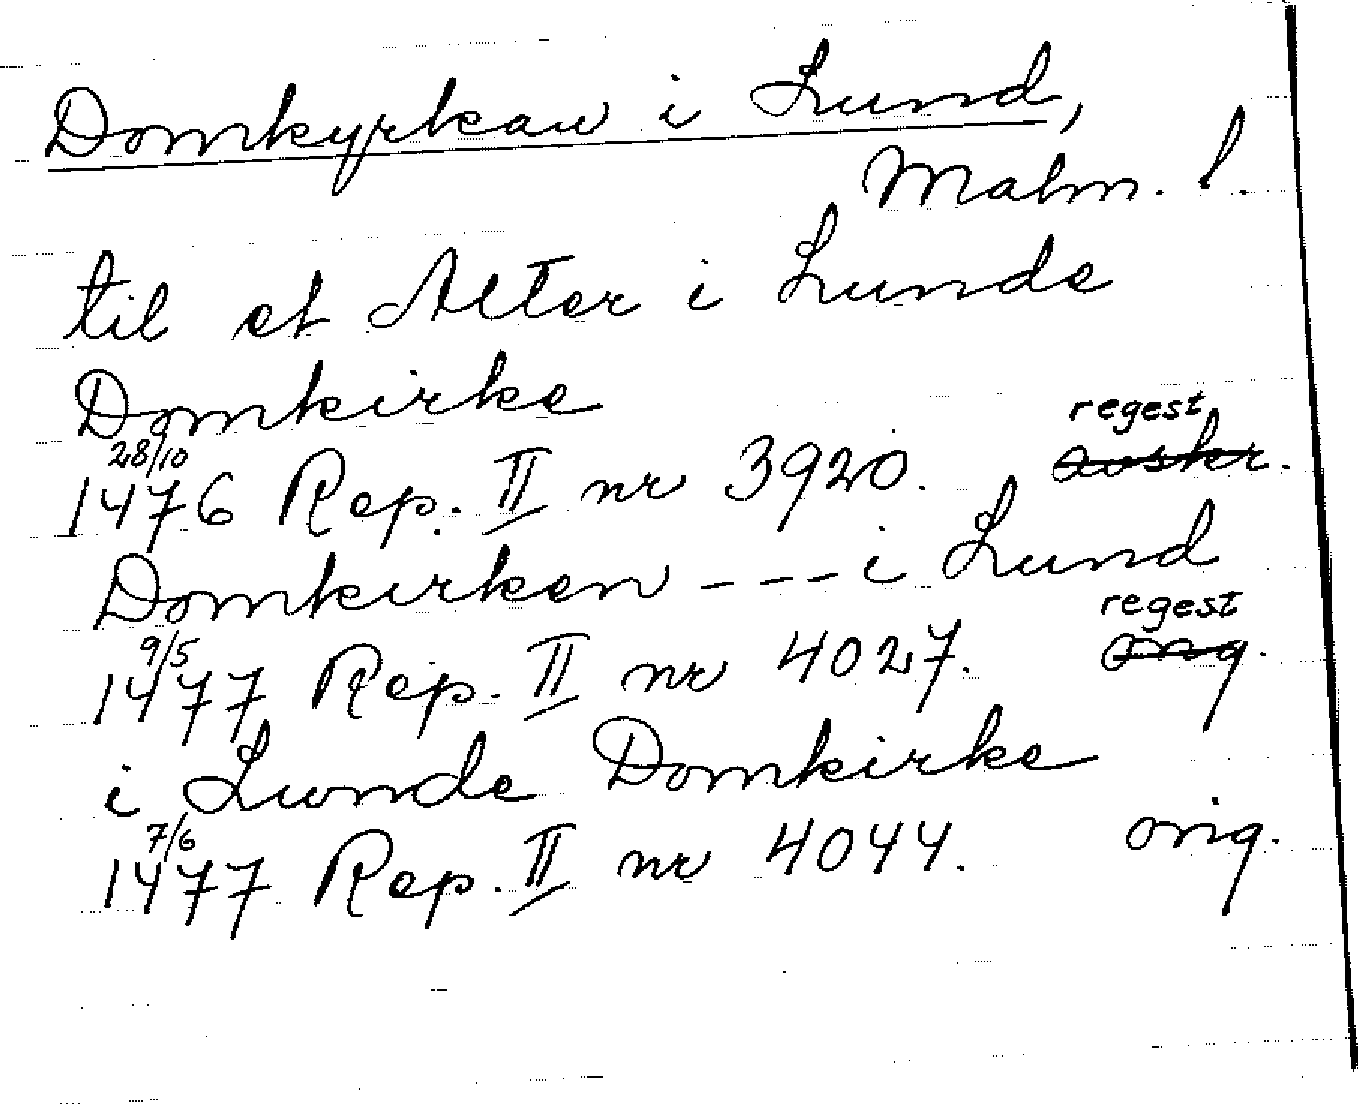 Domkyrkan i Lund,
Malm. l.
til et Alter i Lunde
Domkirke
28/10 regest
1476 Rep. II nr 3920. avskr.
Domkirken --- i Lund
9/5 regest
1477 Rep. II nr 4027. orig.
i Lunde Domkirke
7/6
1477 Rep. II nr 4044. orig.